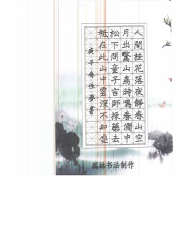 人閒桂花落夜靜春山空
月出驚山鳥時鳴春澗中
松下問童子言師採藥去
祇在此山中雲深不知處
庚子
书法制作